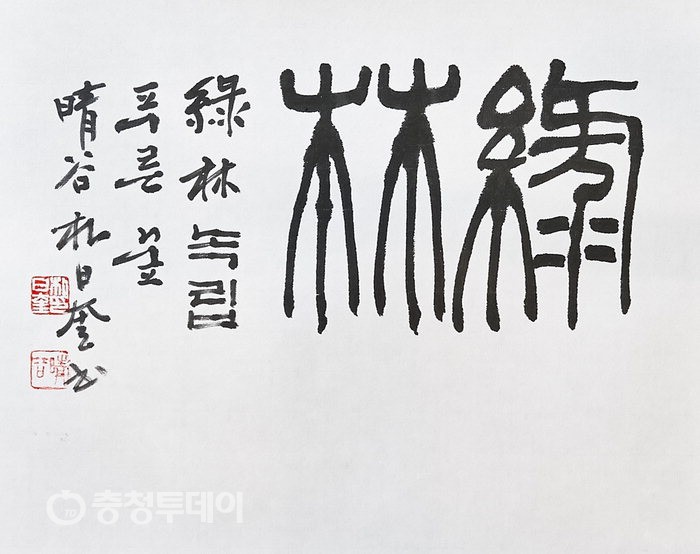 綠林
綠林 녹림
푸른 숲
晴谷 朴日奎 書
晴谷
충청투데이